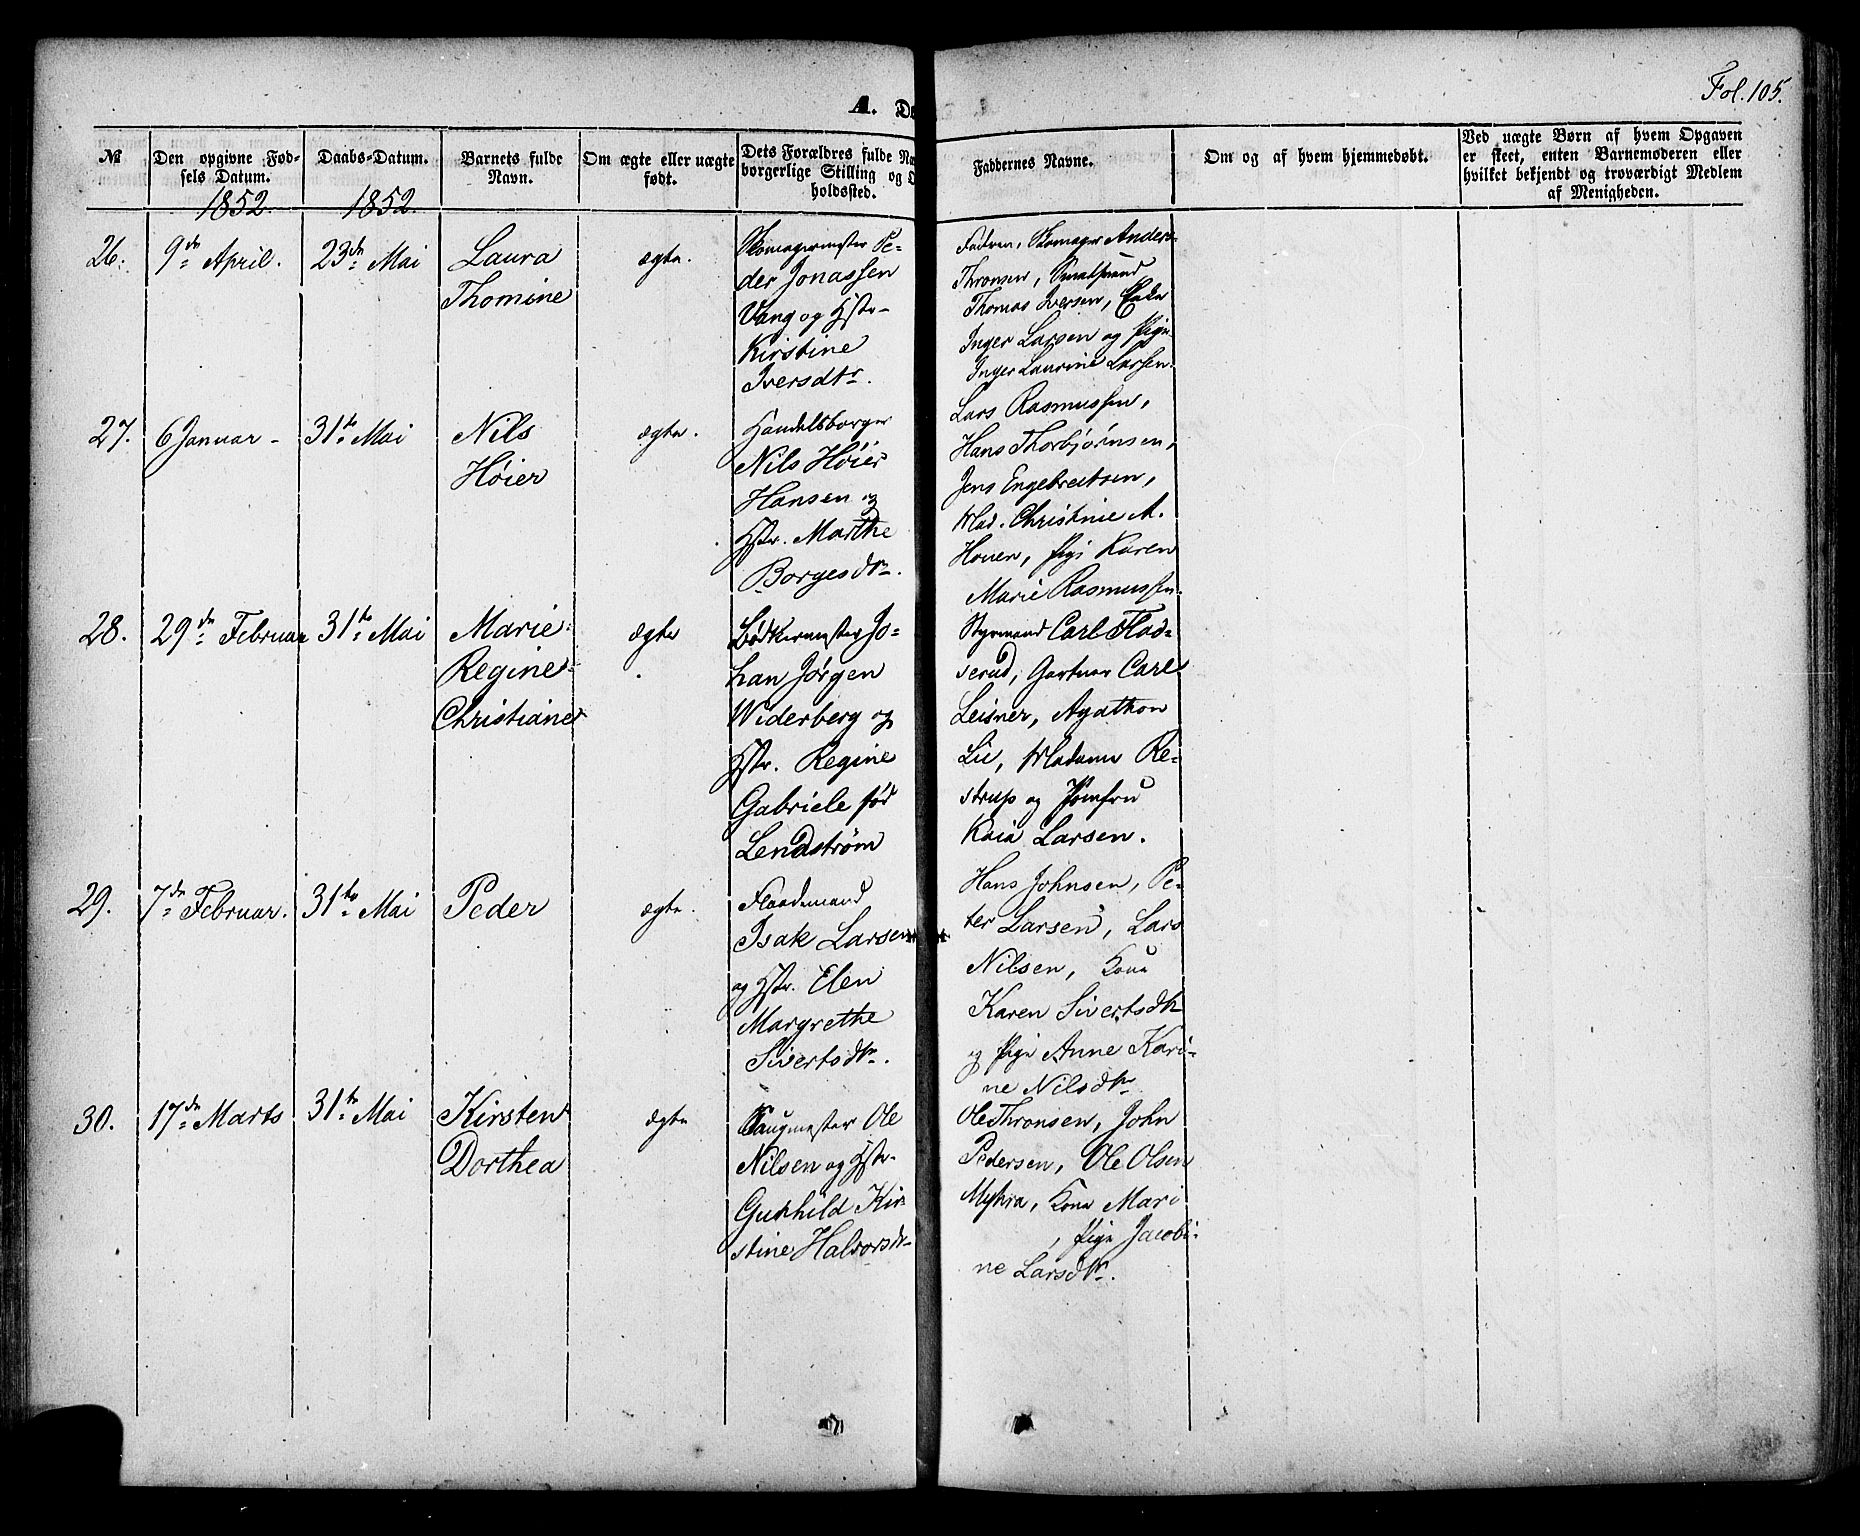 Fol. 105.
A. De
№
Den opgivne Fød-
sels Datum.
1852.
Daabs-Datum.
1852.
Barnets fulde
Navn.
Om ægte eller uægte
født.
Dets Forældres fulde Na
borgerlige Stilling og O
holdssted.
Faddernes Navne.
Om og af hvem hjemmedøbt.
Ved uægte Børn af hvem Opgaven
er skeet, enten Barnemoderen eller
hvilket bekjendt og troværdigt Medlem
af Menigheden.
26.
9de April.
23de Mai
Laura
Thomine
ægte.
Skomagermester Pe-
der Jonassen
Vang og Hstr.
Kirstine
Iversdtr.
Fadren, Skomager Anders
Thronsen, Smalstrand
Thomas Iversen, Enke
Inger Larsen og Pige
Inger Laurine Larsen.
27.
6 Januar -
31te Mai
Nils
Høier
ægte.
Handelsborger
Nils Høier
Hansen og
Hstr. Marthe
Borgesdtr.
Lars Rasmussen,
Hans Thorbjørnsen,
Jens Engebreitsen,
Mad. Christine A.
Houen, Pige Karen
Marie Rasmussen.
28.
29de Februar
31te Mai
Marie
Regine
Christiane
ægte
Bødkermester Jo-
han Jørgen
Widerberg og
Hstr. Regine
Gabriele fød
Lendstrøm
Styrmand Carl Flod-
serud, Gartner Carl
Leisner, Agathon
Lie, Madame Re-
strup og Jomfru
Kaia Larsen.
29.
7de Februar.
31te Mai
Peder
ægte.
Floodemand
Isak Larsen
og Hstr. Elen
Margrethe
Sivertsdtr.
Hans Johnsen, Pe-
ter Larsen, Lars
Nilsen, Kone
Karen Sivertsdtr
og Pige Anne Kari-
ne Nilsdtr
30.
17de Marts
31te Mai
Kirsten
Dorthea
ægte
Saugmester Ole
Nilsen og Hstr.
Gunhild Kir-
stine Halvorsdr
Ole Thronsen, John
Pedersen, Ole Olsen
Myhra, Kone Mari
, Pige Jacobi-
ne Larsdtr.